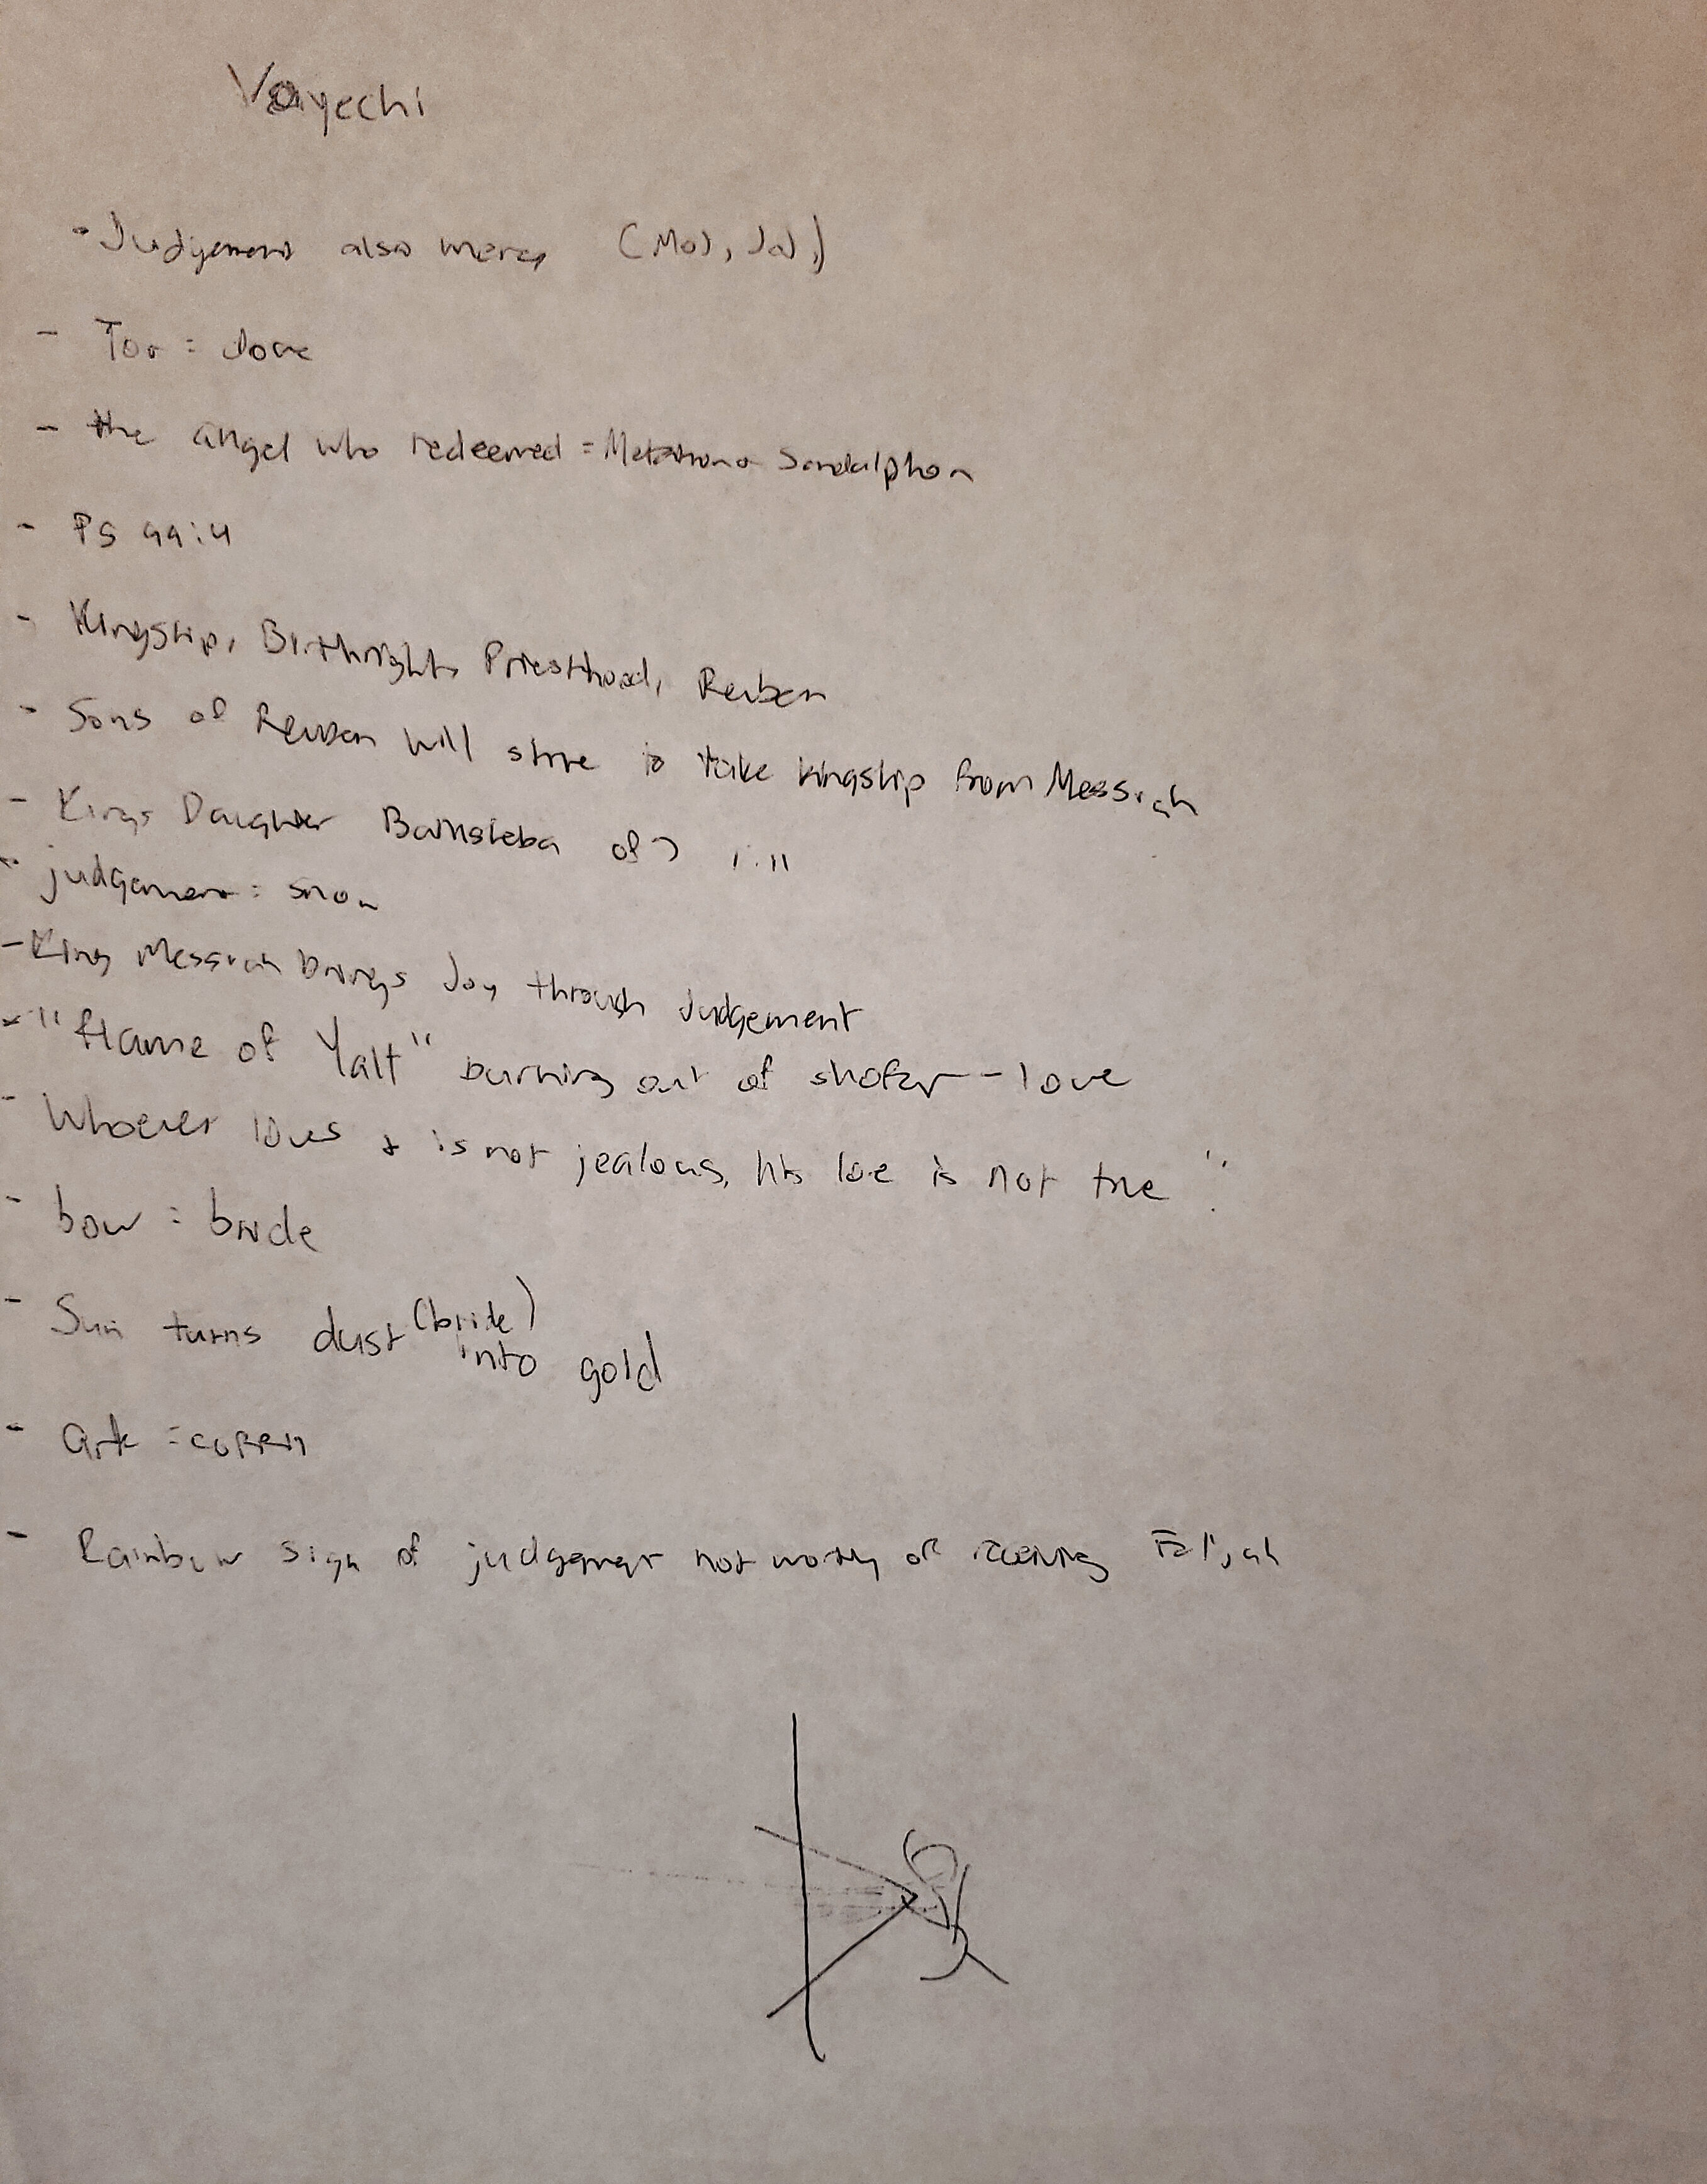 Vayechi
- Judgement also mercy
- Tor = dove
- the angel who redeemed = Sandalphon
- PS 99:4
- Kingship, Birthright, Priesthood, Reuben
- Sons of Reuben will strive to take kingship from Messiah
- Kings Daughter Bathsheba of 7
- judgement = snow
- King Messiah brings Joy through Judgement
- "flame of Yah" burning out of shofar - love
- Whoever loves & is not jealous, his love is not true "
- bow = bride
- Sun turns dust (bride) into gold
- Ark = coffin
- Rainbow sign of judgement not worthy of receiving